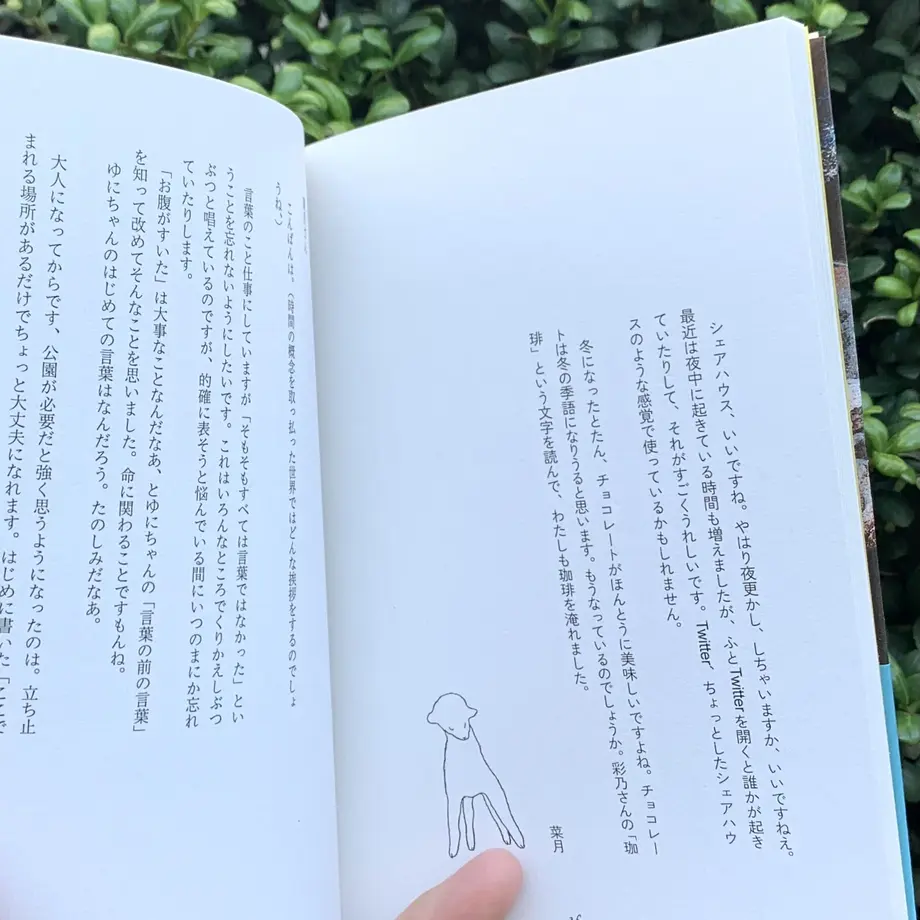 シェアハウス、いいですね。やはり夜更かし、しちゃいますか、いいですねえ。
最近は夜中に起きている時間も増えましたが、ふとTwitterを開くと誰かが起き
ていたりして、それがすごくうれしいです。Twitter、ちょっとしたシェアハウ
スのような感覚で使っているかもしれません。
冬になったとたん、チョコレートがほんとうに美味しいですよね。チョコレー
トは冬の季語になりうると思います。もうなっているのでしょうか。彩乃さんの「珈
琲」という文字を読んで、わたしも珈琲を淹れました。
菜月
こんばんは。(時間の概念を取っ払った世界ではどんな挨拶をするのでしょ
うね。)
言葉のこと仕事にしていますが「そもそもすべては言葉ではなかった」とい
うことを忘れないようにしたいです。これはいろんなところでくりかえしぶつ
ぶつと唱えているのですが、的確に表そうと悩んでいる間にいつのまにか忘れ
ていたりします。
「お腹がすいた」は大事なことなんだなあ、とゆにちゃんの「言葉の前の言葉」
を知って改めてそんなことを思いました。命に関わることですもんね。
ゆにちゃんのはじめての言葉はなんだろう。たのしみだなあ。
大人になってからです、公園が必要だと強く思うようになったのは。立ち止
まれる場所があるだけでちょっと大丈夫になれます。はじめに書いた「ここで